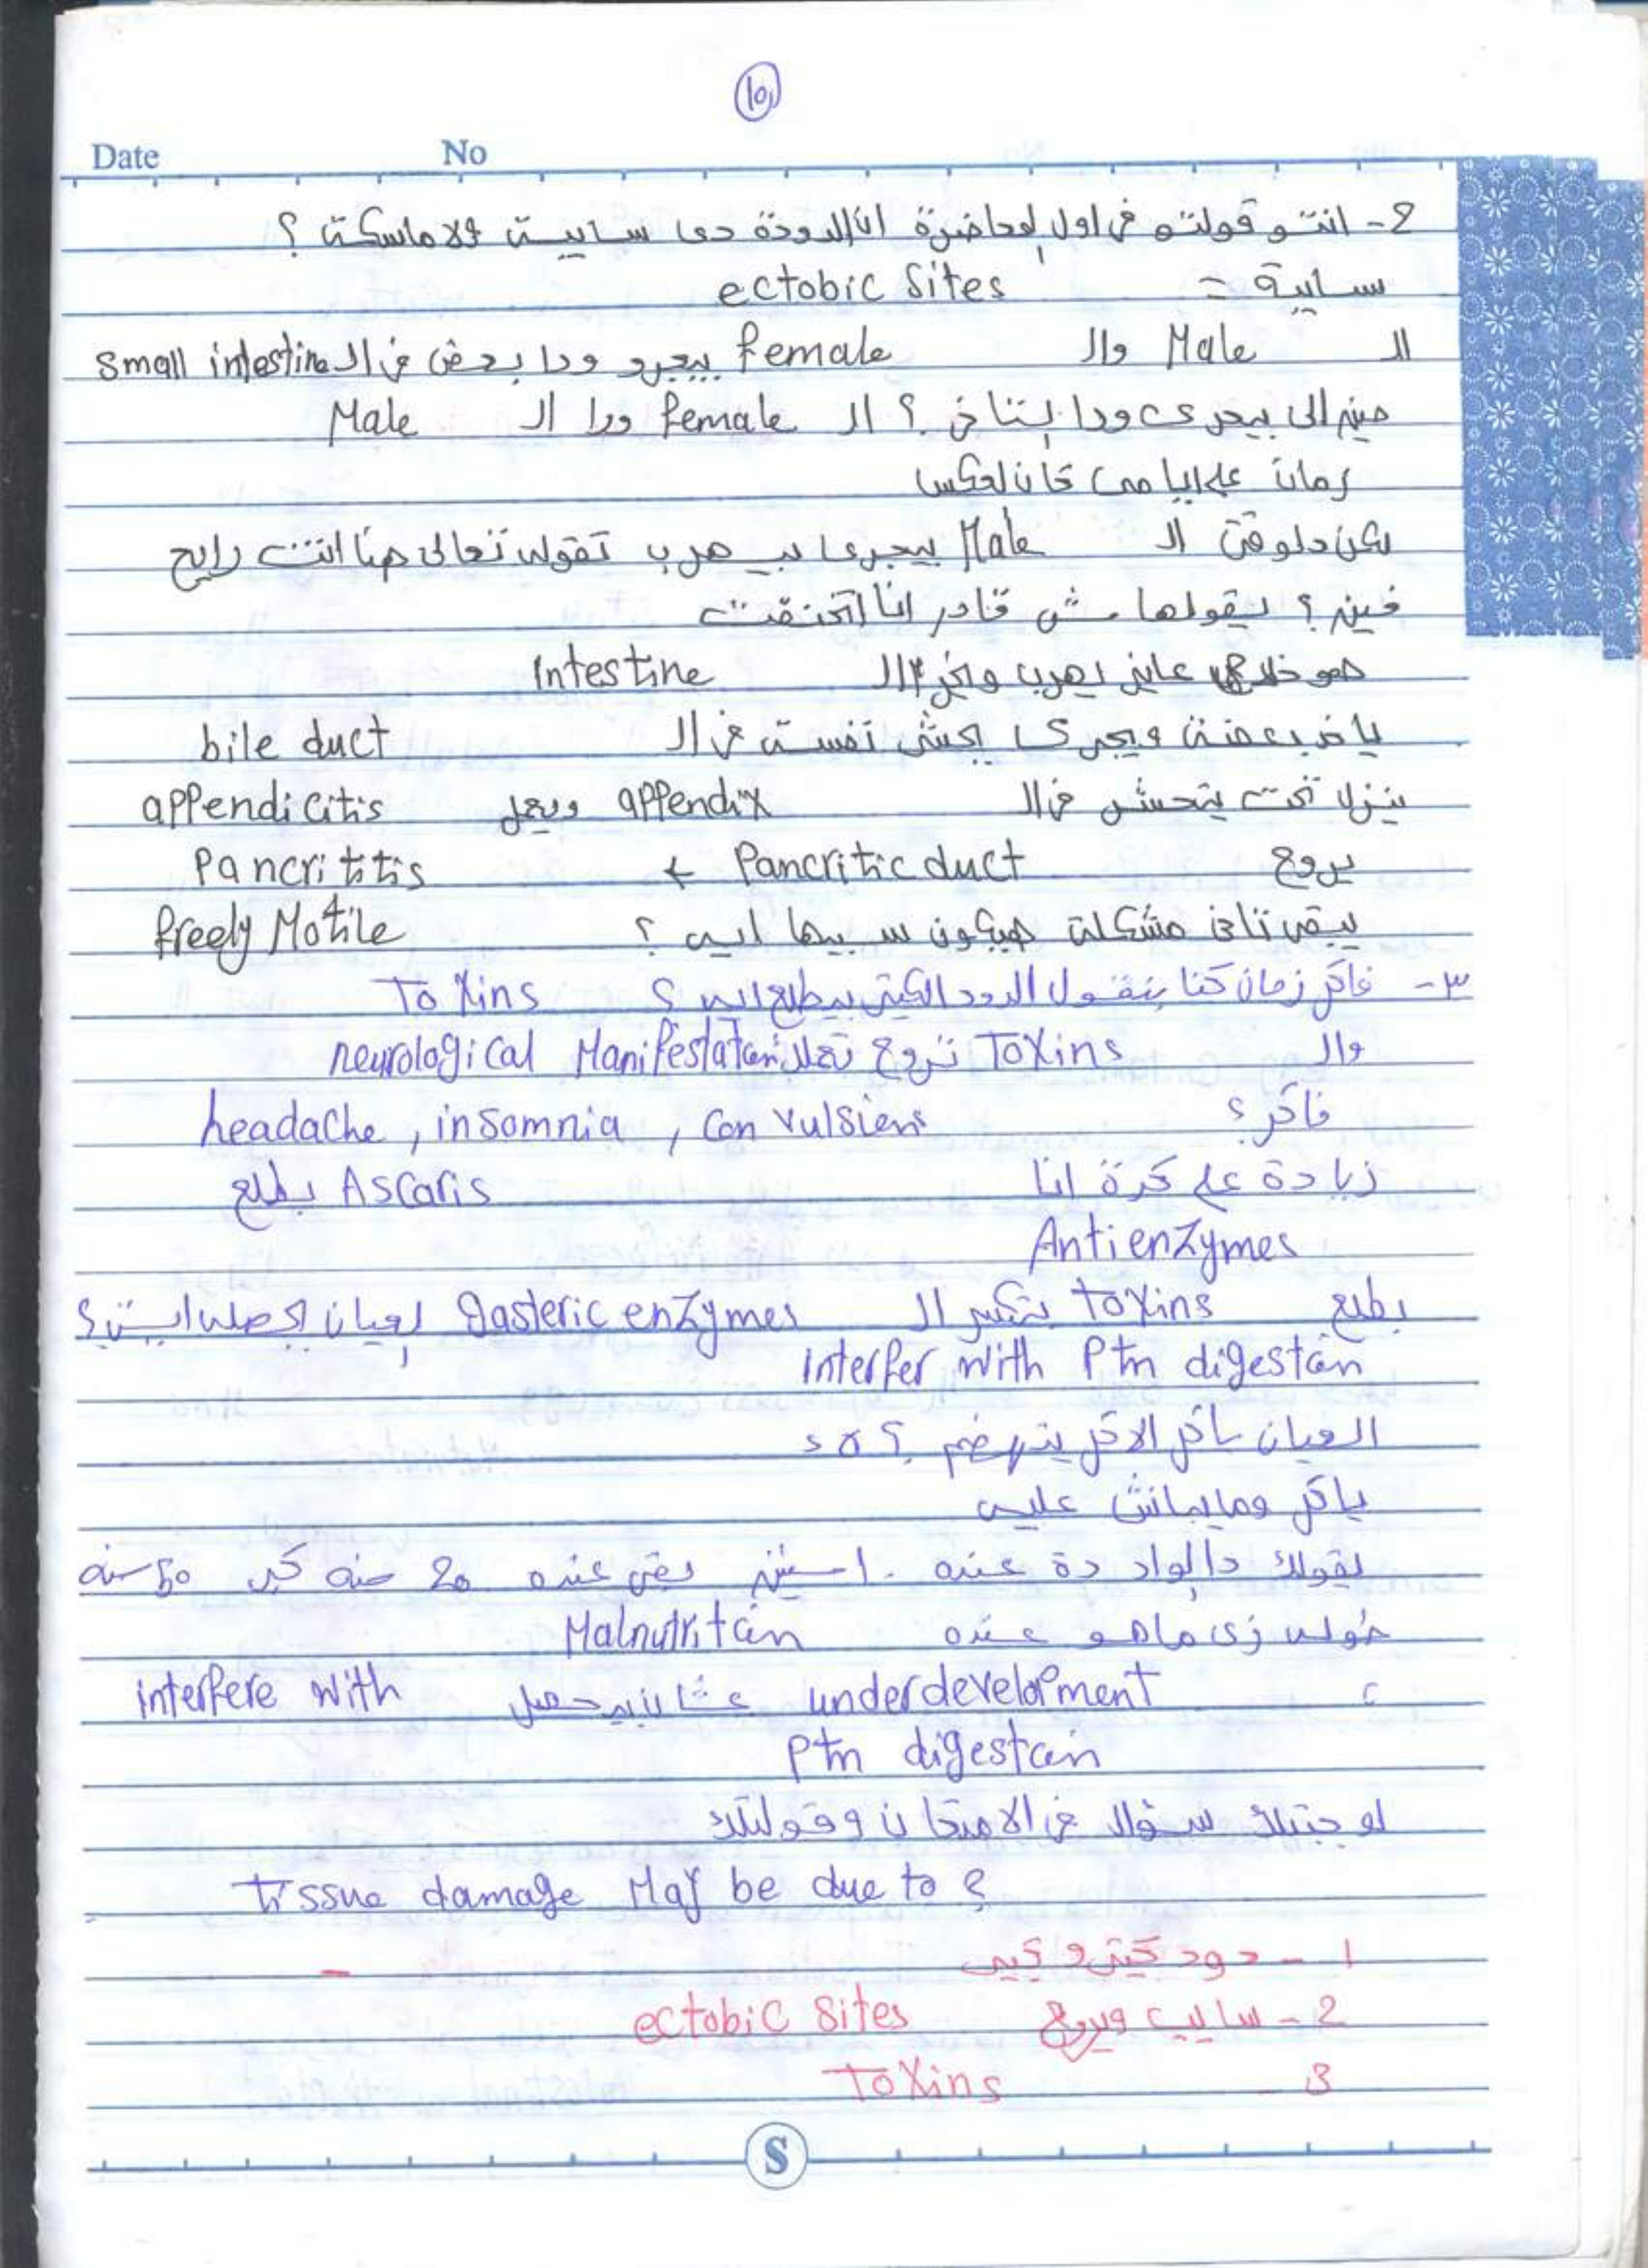 10
Date No
2- انتو قولتو في اول لمحاضرة ان الدودة دى سايبة ولا ماسكة ؟
سايبة = ectobic sites
ال Male وال female بيجرو ورا بعض في ال small intestine
مين الى بيجرى ورا التانى ؟ ال female ورا ال Male
زمان على ايامى كان العكس
لكن دلوقتى ال Male بيجرى بيهرب تقوله تعالى هنا انت رايح
فين ؟ يقولها مش قادر انا اتخنقت
هو خلاص عايز يهرب ال Intestine
ياخد بعضه ويجرى يحشر نفسه في ال bile duct
ينزل تحت يتحشر في ال appendix ويعمل appendicitis
يروح Pancritic duct ← Pancrititis
يبقى تانى مشكلة هيكون سبيها ايه ؟ freely Motile
٣- فاكر زمان كنا بنقول الدود الكتير بيطلع ايه ؟ Toxins
وال Toxins تروح تعملك neurological Manifestation
فاكر ؟ headache , insomnia , Convulsions
زيادة على كدة انا Ascaris بطلع
Antienzymes
بطلع toxins بتكسر ال gasteric enzymes لعيان يحصله ايه ؟
interfer with Ptn digestion
العيان ياكل الاكل يتهضم ؟ لاء
ياكل ومايبانش عليه
يقولك دا الواد دة عنده ١٠ سنين بقى عنده 20 سنه كبر 50 سنه
قوله زى ماهو عنده Malnutrition
c underdevelopment عشان بيحصل interfere with
Ptn digestion
لو جبتلك سؤال في الامتحان وقولتلك
tissue damage May be due to ?
1 - دود كتير وكبير -
2 - سايب ويروح ectobic sites
3 - Toxins
S